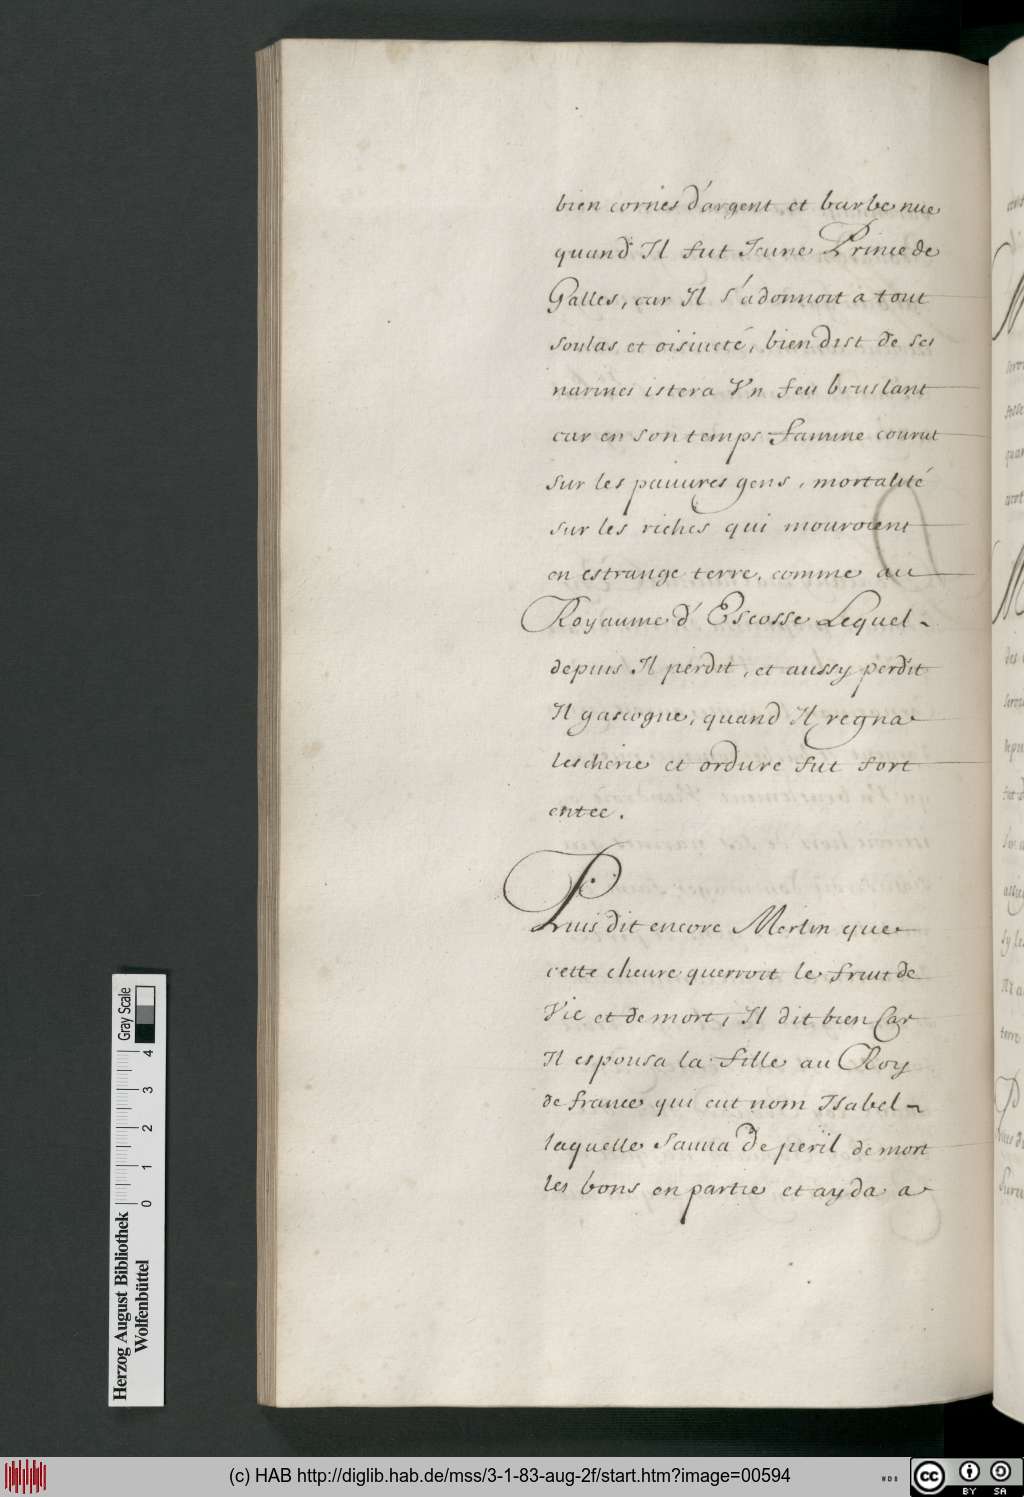 bien cornes d'argent et barbe nue
quand Il fut Jeune Prince de
Galles, car Il s'adonnoit a tout
soulas et oisiueté, bien dist de ses
narines istera Vn feu bruslant
car en son temps famine courut
sur les pauures gens, mortalité
sur les riches qui mouroient
en estrange terre, comme au
Royaume d'Escosse Lequel
depuis Il perdit, et aussy perdit
Il gascogne, quand Il regna
lescherie et ordure fut fort
entee.
Puis dit encore Merlin que
cette cheure querroit le fruit de
Vie et de mort, Il dit bien Car
Il espousa la fille au Roy
de france qui eut nom Isabel
laquelle sauua de peril de mort
les bons en partie et ayda a
Gray Scale
4
3
2
1
0
Herzog August Bibliothek
Wolfenbüttel
(c) HAB http://diglib.hab.de/mss/3-1-83-aug-2f/start.htm?image=00594
WDB
cc
BY SA